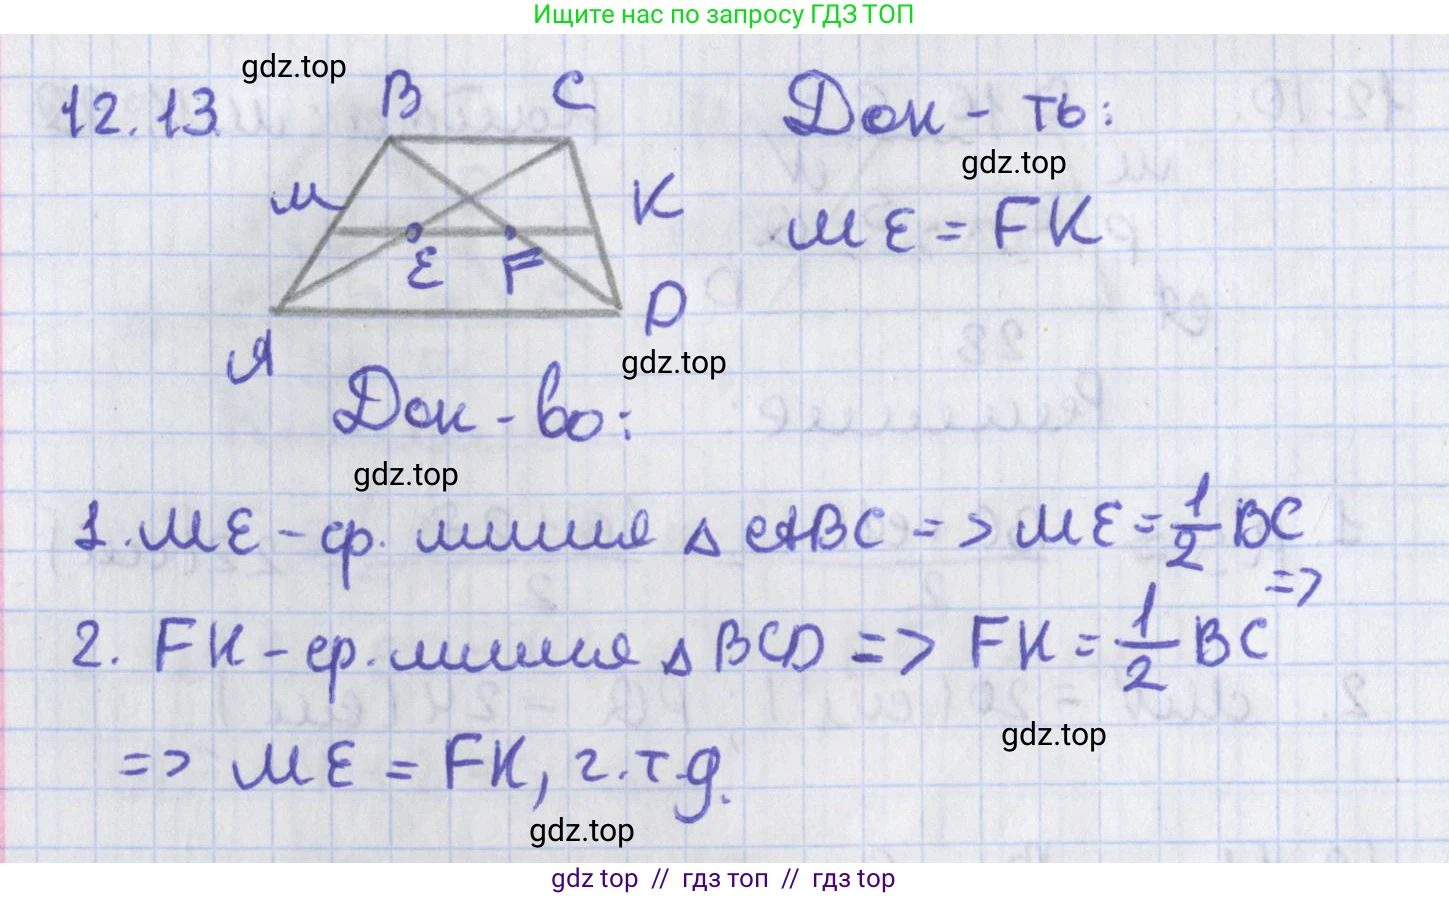 Ищите нас по запросу ГДЗ ТОП
gdz.top
12.13
B C
Док-ть:
gdz.top
M K
ME = FK
E F
D
A
gdz.top
Док-во:
gdz.top
1. ME - ср. линия △ ABC => ME = 1/2 BC
=>
2. FK - ср. линия △ BCD => FK = 1/2 BC
gdz.top
=> ME = FK, ч.т.д.
gdz.top
gdz top // гдз топ // гдз top